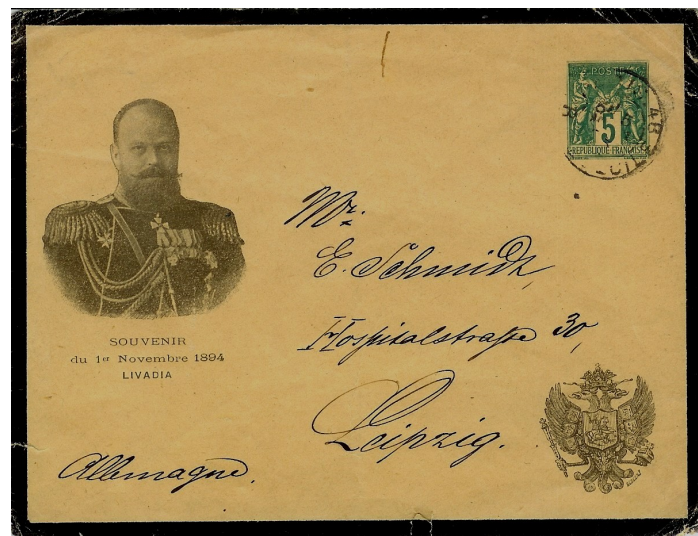 POSTES
5
REPUBLIQUE FRANÇAISE
SOUVENIR
du 1er Novembre 1894
LIVADIA
Mr.
E. Schmidt,
Hospitalstraße 30,
Leipzig.
Allemagne.